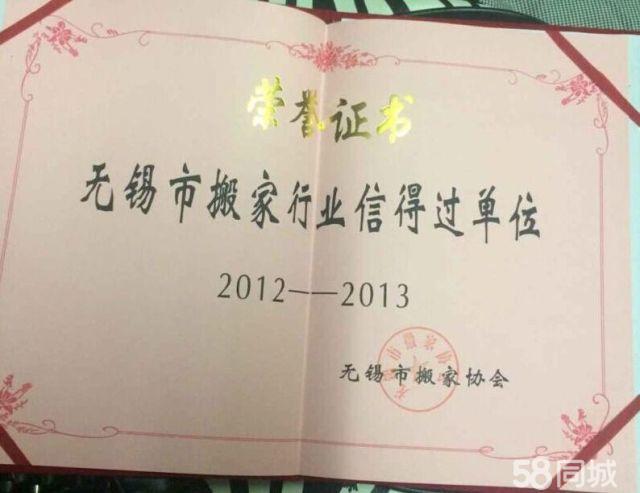 荣誉证书
无锡市搬家行业信得过单位
2012——2013
无锡市搬家协会
58同城